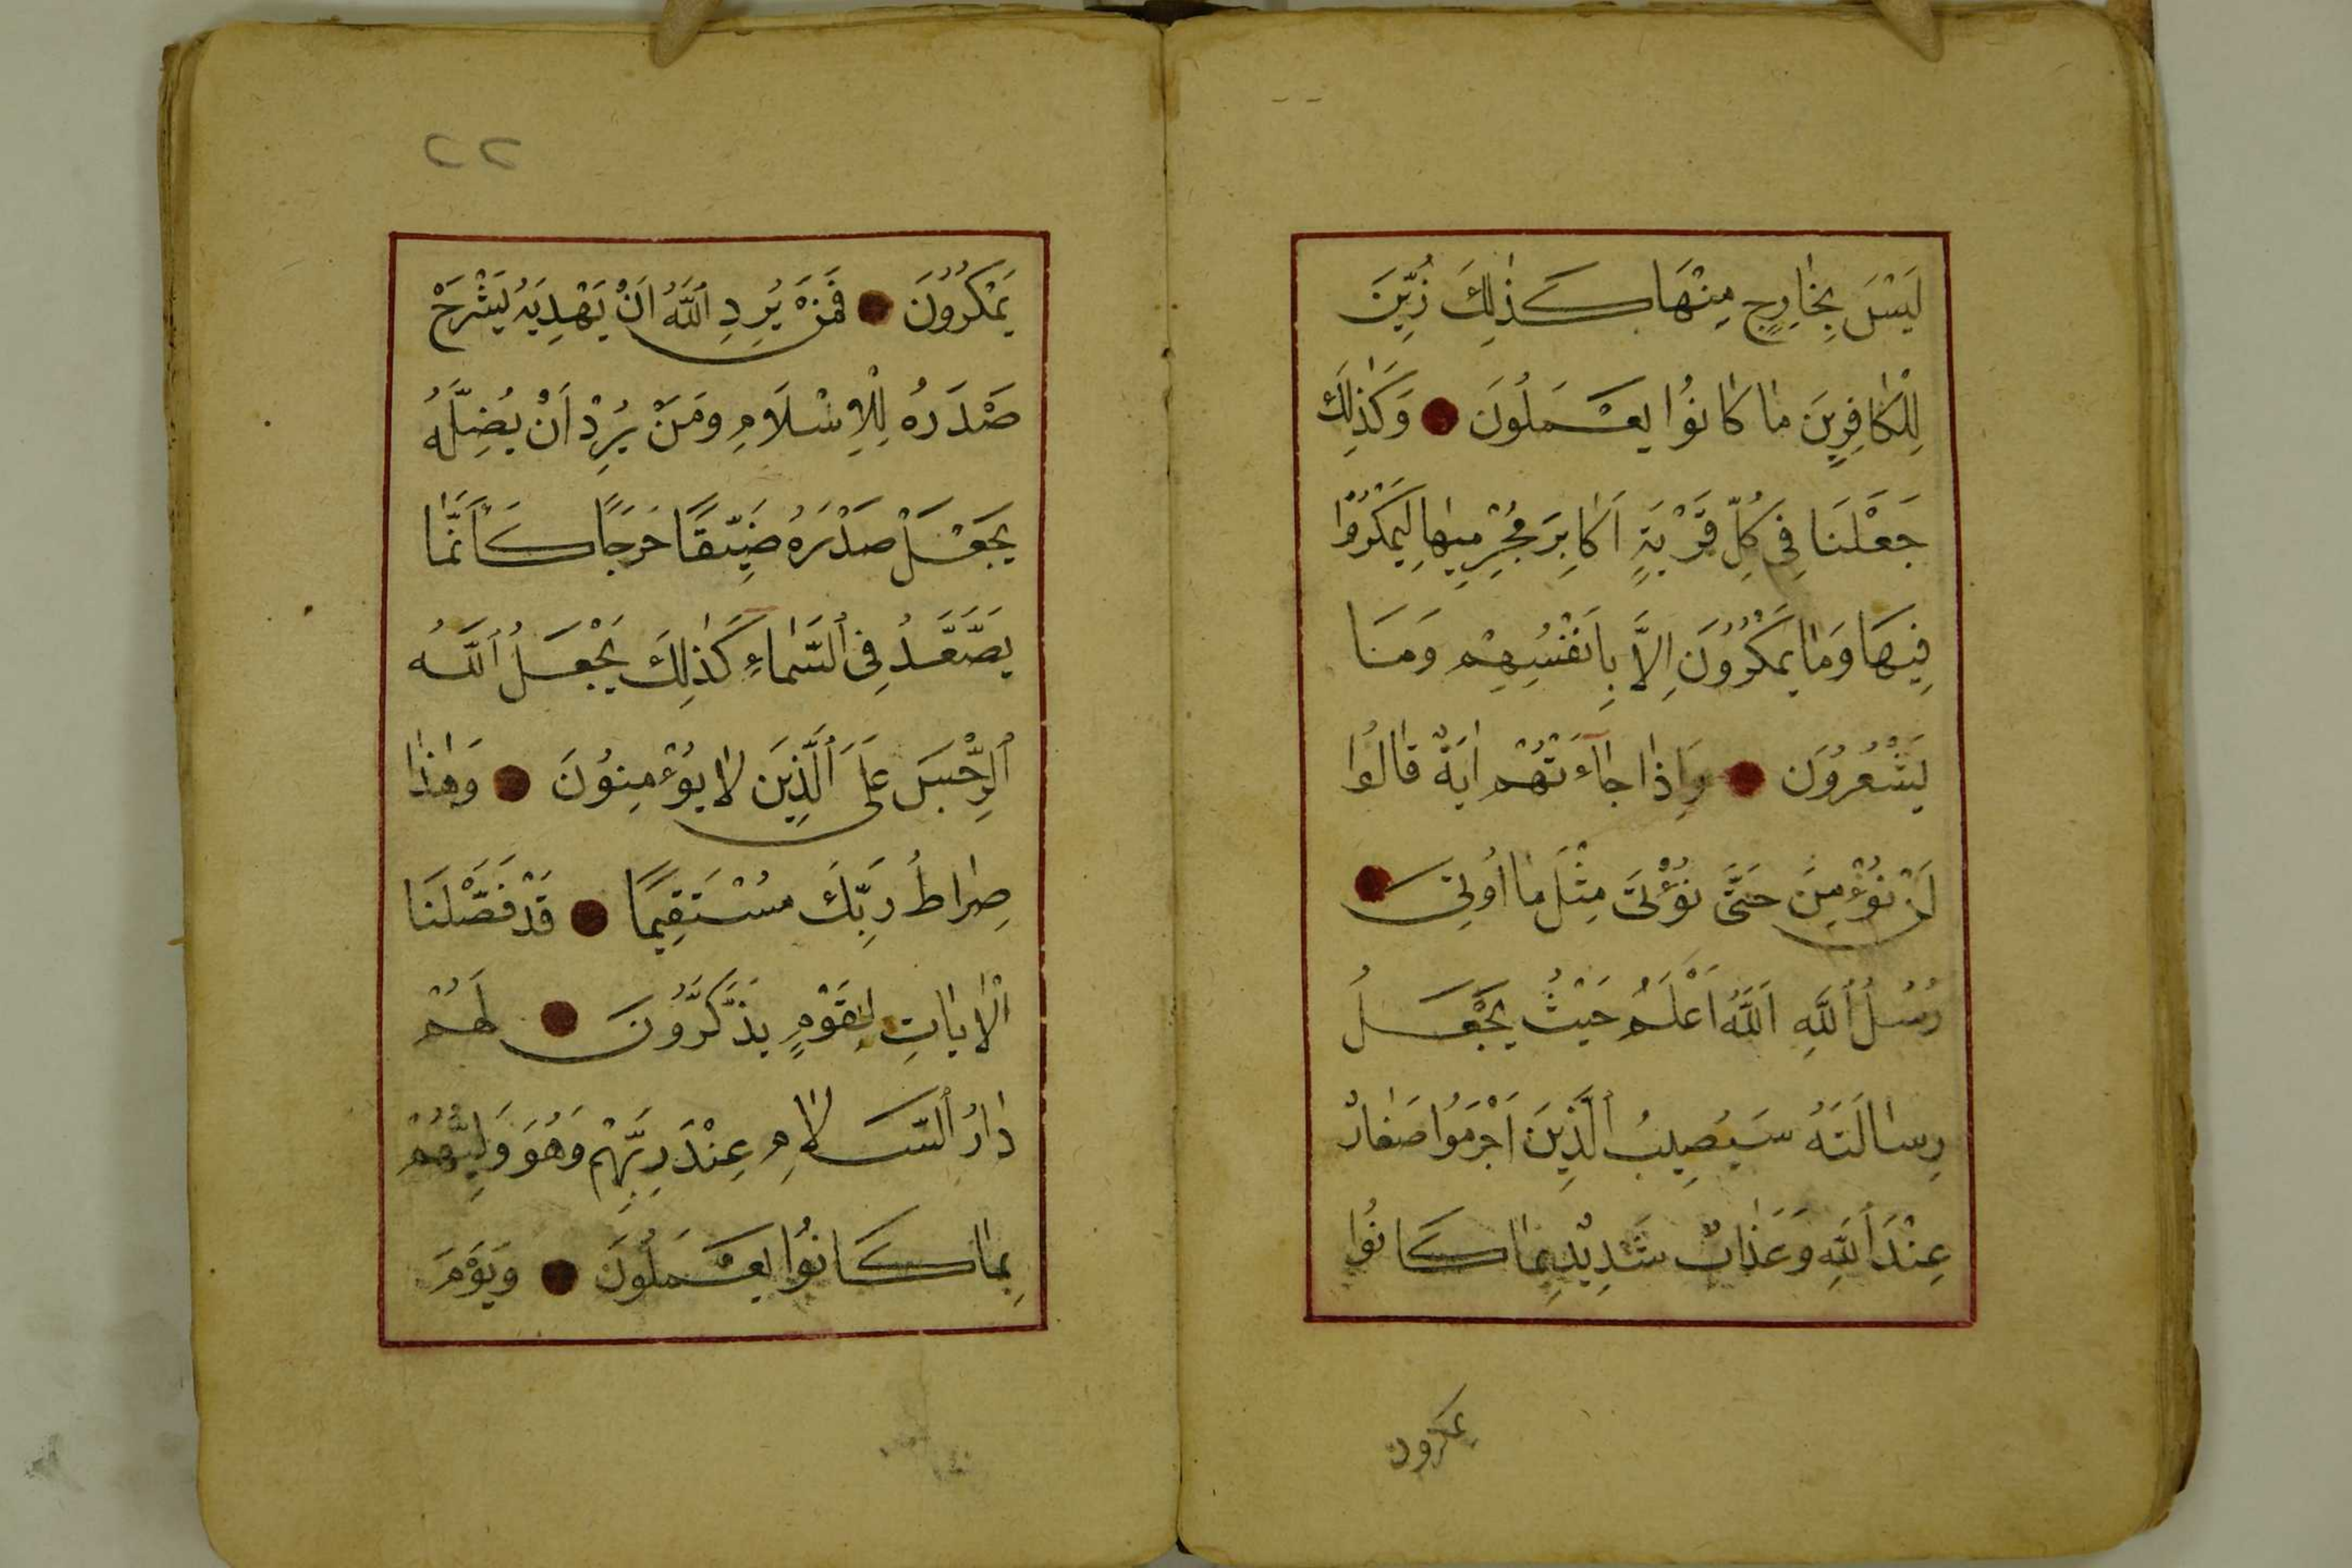 لَيْسَ بِخَارِجٍ مِنْهَا كَذٰلِكَ زُيِّنَ
لِلْكَافِرِينَ مَا كَانُوا يَعْمَلُونَ وَكَذٰلِكَ
جَعَلْنَا فِي كُلِّ قَرْيَةٍ اَكَابِرَ مُجْرِمِيهَا لِيَمْكُرُوا
فِيهَا وَمَا يَمْكُرُونَ اِلَّا بِاَنْفُسِهِمْ وَمَا
يَشْعُرُونَ وَاِذَا جَاءَتْهُمْ اٰيَةٌ قَالُوا
لَنْ نُؤْمِنَ حَتَّى نُؤْتَى مِثْلَ مَا اُوتِىَ
رُسُلُ ٱللّٰهِ اَللّٰهُ اَعْلَمُ حَيْثُ يَجْعَلُ
رِسَالَتَهُ سَيُصِيبُ ٱلَّذِينَ اَجْرَمُوا صَغَارٌ
عِنْدَ ٱللّٰهِ وَعَذَابٌ شَدِيدٌ بِمَا كَانُوا
يمكرون
٢٢
يَمْكُرُونَ فَمَنْ يُرِدِ ٱللّٰهُ اَنْ يَهْدِيَهُ يَشْرَحْ
صَدْرَهُ لِلْاِسْلَامِ وَمَنْ يُرِدْ اَنْ يُضِلَّهُ
يَجْعَلْ صَدْرَهُ ضَيِّقًا حَرَجًا كَاَنَّمَا
يَصَّعَّدُ فِى ٱلسَّمَاءِ كَذٰلِكَ يَجْعَلُ ٱللّٰهُ
ٱلرِّجْسَ عَلَى ٱلَّذِينَ لَا يُؤْمِنُونَ وَهٰذَا
صِرَاطُ رَبِّكَ مُسْتَقِيمًا قَدْ فَصَّلْنَا
ٱلْاٰيَاتِ لِقَوْمٍ يَذَّكَّرُونَ لَهُمْ
دَارُ ٱلسَّلَامِ عِنْدَ رَبِّهِمْ وَهُوَ وَلِيُّهُمْ
بِمَا كَانُوا يَعْمَلُونَ وَيَوْمَ